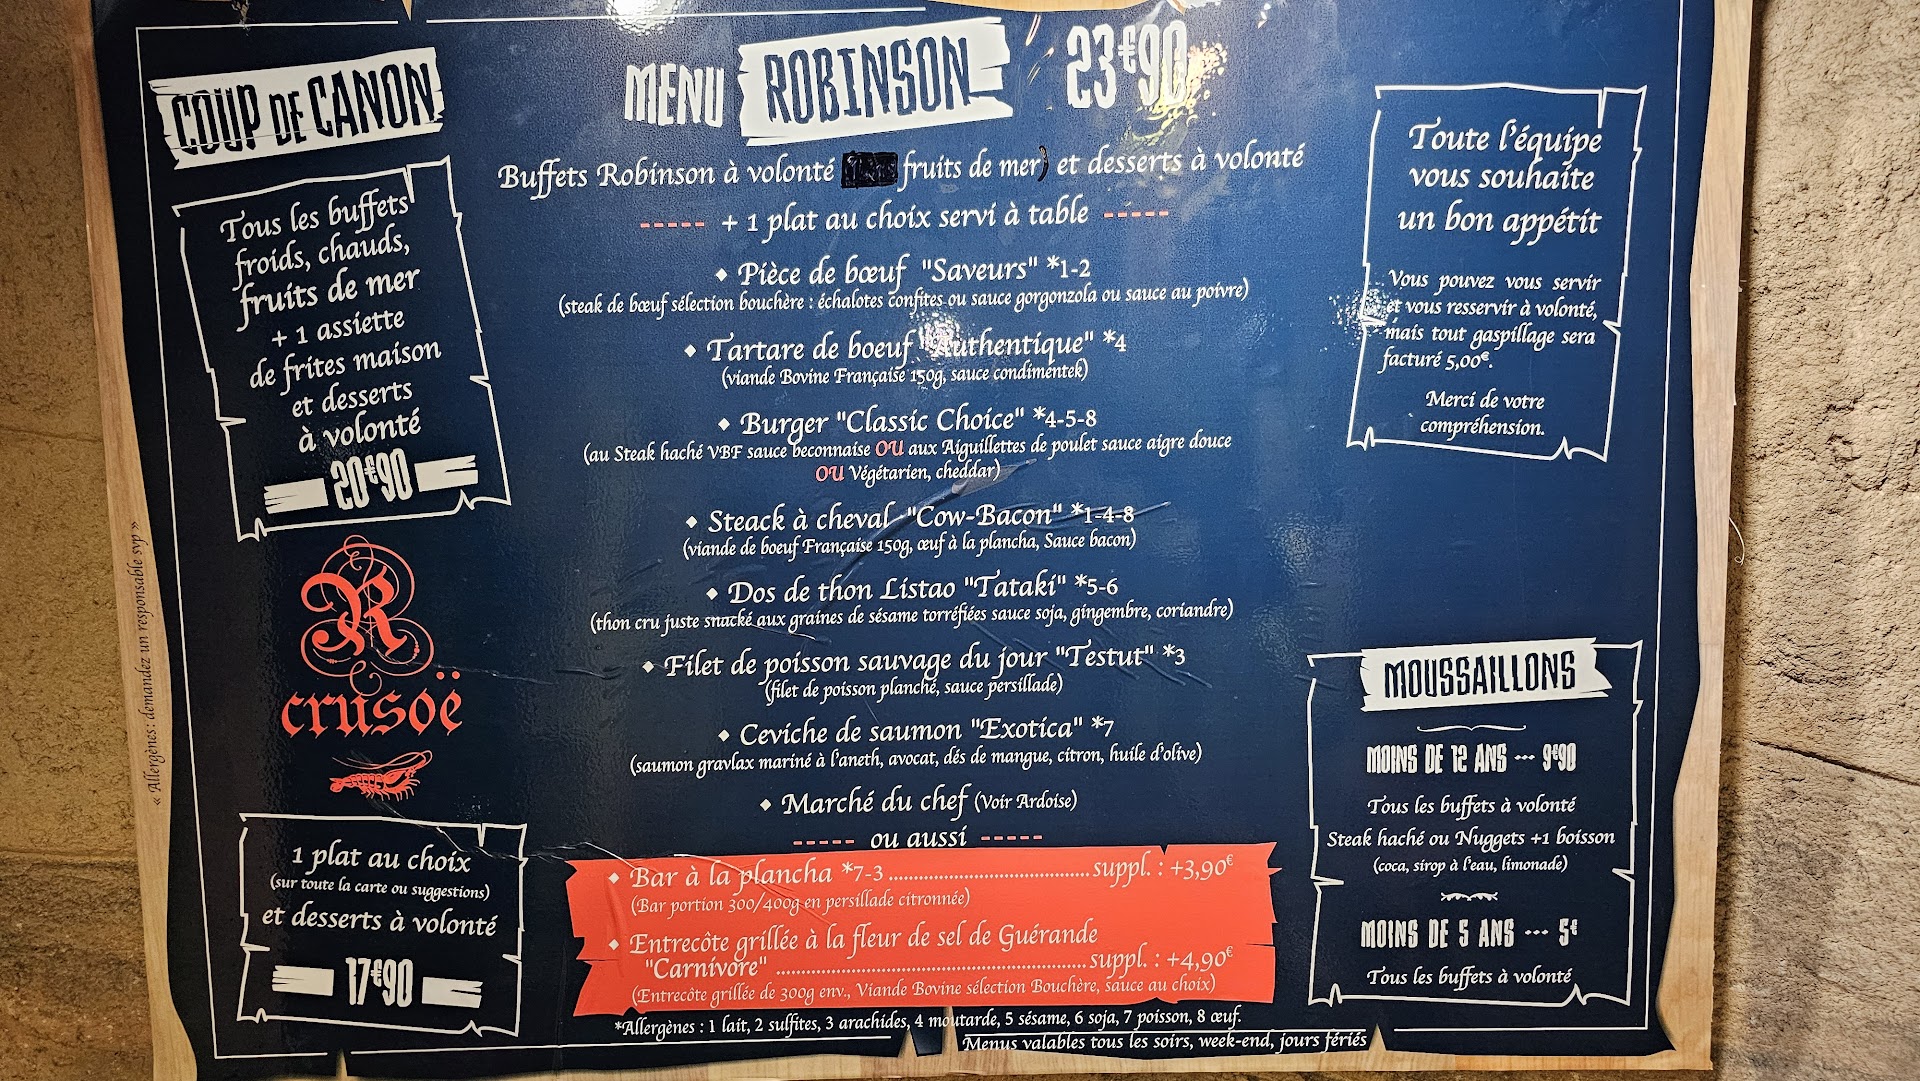 COUP DE CANON
Tous les buffets
froids, chauds,
fruits de mer
+ 1 assiette
de frites maison
et desserts
à volonté
20€90
R
crusoë
1 plat au choix
(sur toute la carte ou suggestions)
et desserts à volonté
17€90
« Allergènes : demandez un responsable svp »
MENU ROBINSON 23€90
Buffets Robinson à volonté fruits de mer) et desserts à volonté
----- + 1 plat au choix servi à table -----
◆ Pièce de bœuf "Saveurs" *1-2
(steak de bœuf sélection bouchère : échalotes confites ou sauce gorgonzola ou sauce au poivre)
◆ Tartare de boeuf "Authentique" *4
(viande Bovine Française 150g, sauce condimentek)
◆ Burger "Classic Choice" *4-5-8
(au Steak haché VBF sauce beconnaise OU aux Aiguillettes de poulet sauce aigre douce
OU Végétarien, cheddar)
◆ Steack à cheval "Cow-Bacon" *1-4-8
(viande de boeuf Française 150g, œuf à la plancha, Sauce bacon)
◆ Dos de thon Listao "Tataki" *5-6
(thon cru juste snacké aux graines de sésame torréfiées sauce soja, gingembre, coriandre)
◆ Filet de poisson sauvage du jour "Testut" *3
(filet de poisson planché, sauce persillade)
◆ Ceviche de saumon "Exotica" *7
(saumon gravlax mariné à l'aneth, avocat, dés de mangue, citron, huile d'olive)
◆ Marché du chef (Voir Ardoise)
----- ou aussi -----
◆ Bar à la plancha *7-3 ........ suppl. : +3,90€
(Bar portion 300/400g en persillade citronnée)
◆ Entrecôte grillée à la fleur de sel de Guérande
"Carnivore" ........ suppl. : +4,90€
(Entrecôte grillée de 300g env., Viande Bovine sélection Bouchère, sauce au choix)
*Allergènes : 1 lait, 2 sulfites, 3 arachides, 4 moutarde, 5 sésame, 6 soja, 7 poisson, 8 œuf.
Menus valables tous les soirs, week-end, jours fériés
Toute l'équipe
vous souhaite
un bon appétit
Vous pouvez vous servir
et vous resservir à volonté,
mais tout gaspillage sera
facturé 5,00€.
Merci de votre
compréhension.
MOUSSAILLONS
MOINS DE 12 ANS --- 9€90
Tous les buffets à volonté
Steak haché ou Nuggets +1 boisson
(coca, sirop à l'eau, limonade)
MOINS DE 5 ANS --- 5€
Tous les buffets à volonté